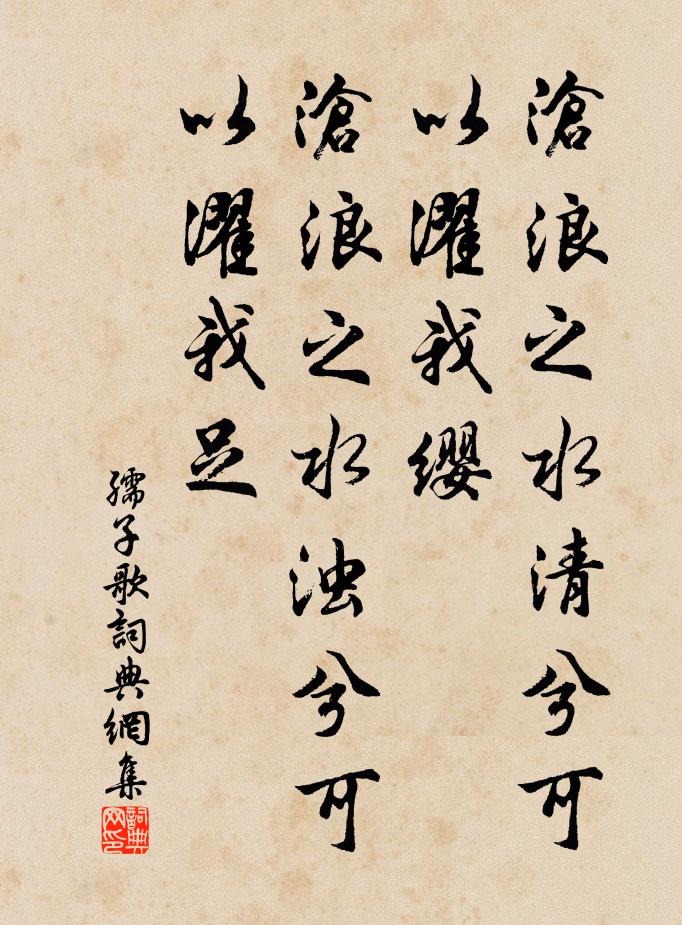 滄浪之水清兮可
以濯我纓
滄浪之水浊兮可
以濯我足
孺子歌詞典網集
詞典网印